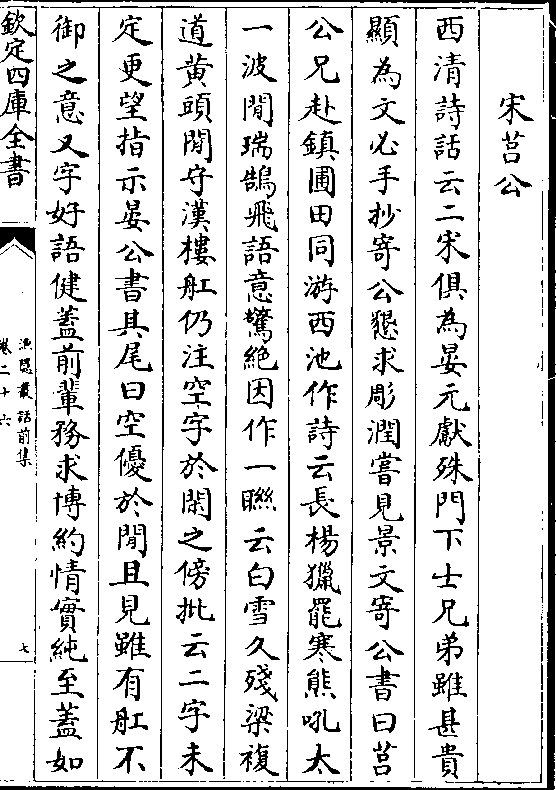 宋莒公
西清詩話云二宋俱為晏元獻殊門下士兄弟雖甚貴
顯為文必手抄寄公懇求彫潤嘗見景文寄公書曰莒
公兄赴鎮圃田同游西池作詩云長楊獵罷寒熊吼太
一波閒瑞鵠飛語意驚絕因作一聯云白雪久殘梁複
道黄頭閒守漢樓舡仍注空字於閑之傍批云二字未
定更望指示晏公書其尾曰空優於閒且見雖有舡不
御之意又字好語健蓋前輩務求博約情實純至蓋如
欽定四庫全書
漁隱叢話前集
卷二十六
七